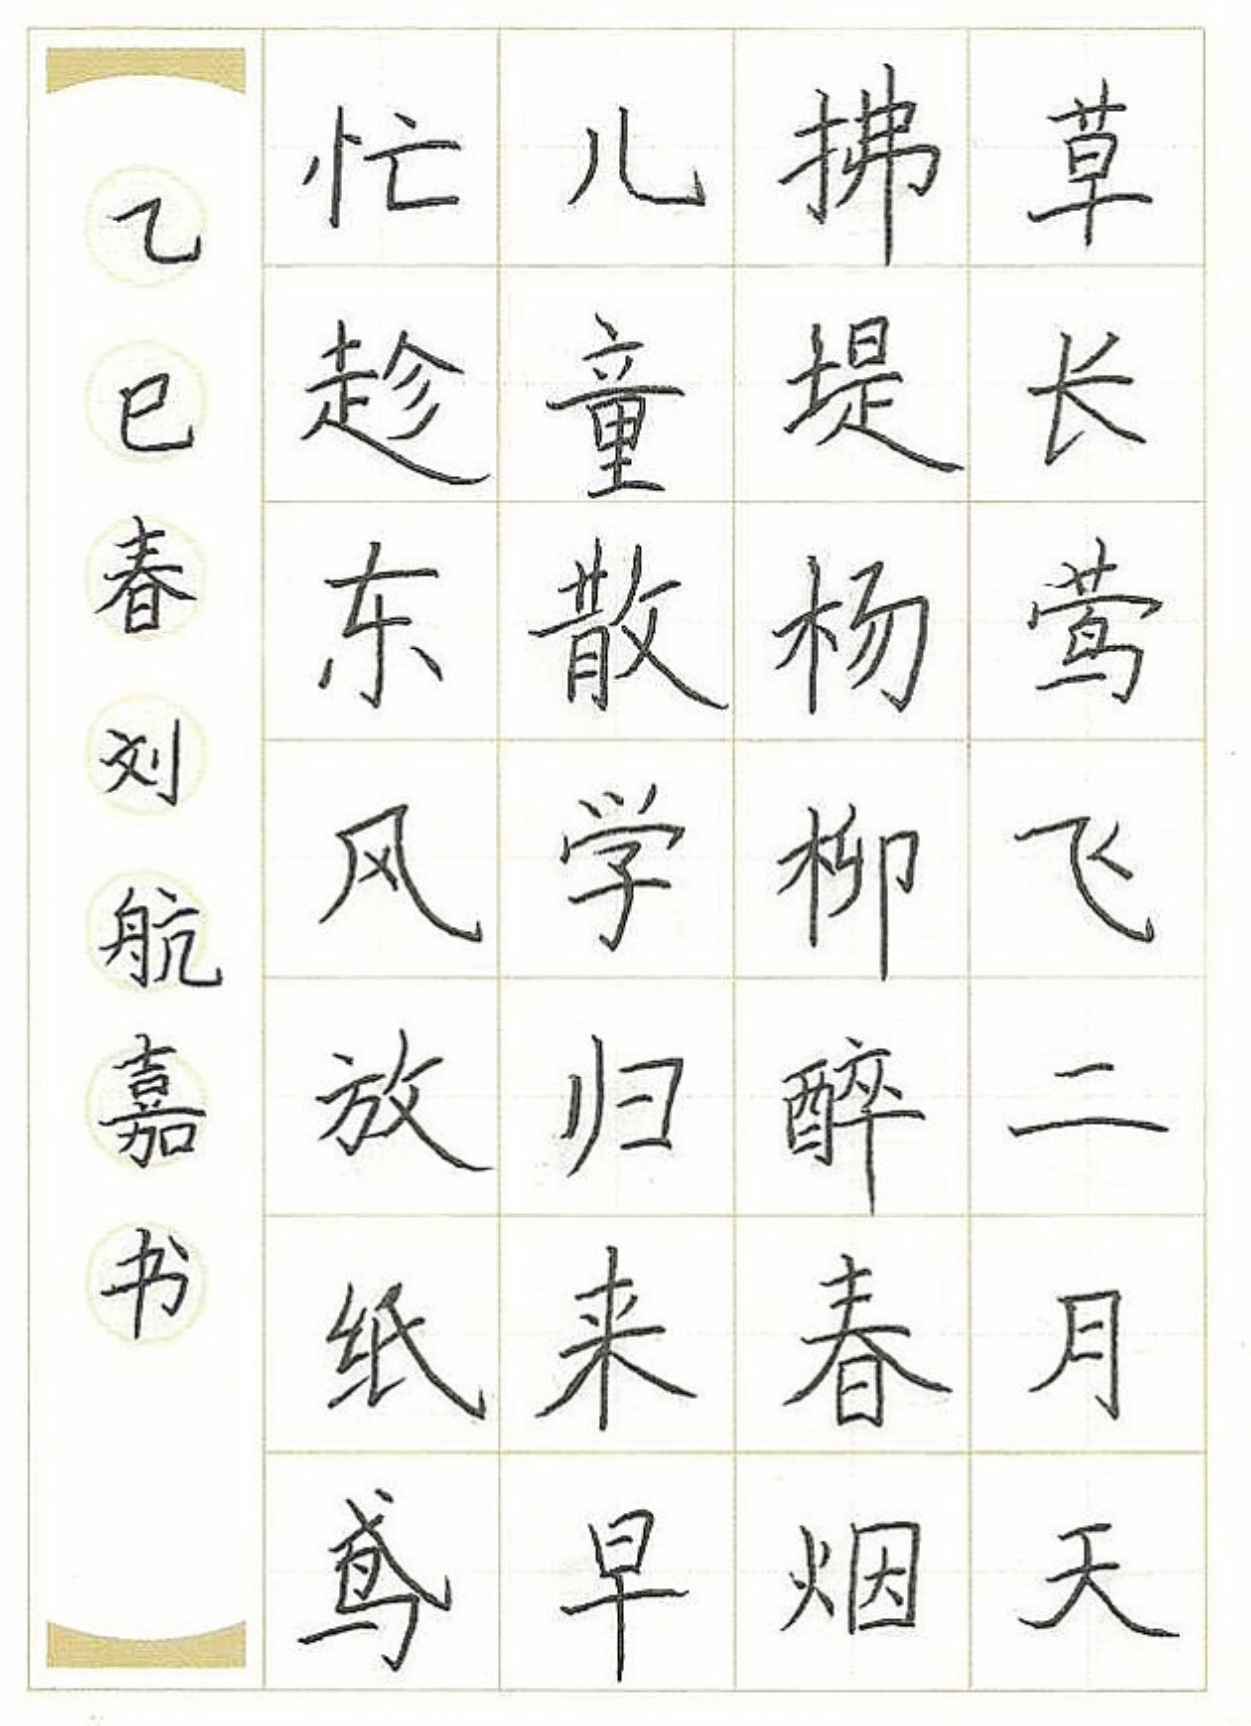 草长莺飞二月天
拂堤杨柳醉春烟
儿童散学归来早
忙趁东风放纸鸢
乙巳春刘航嘉书